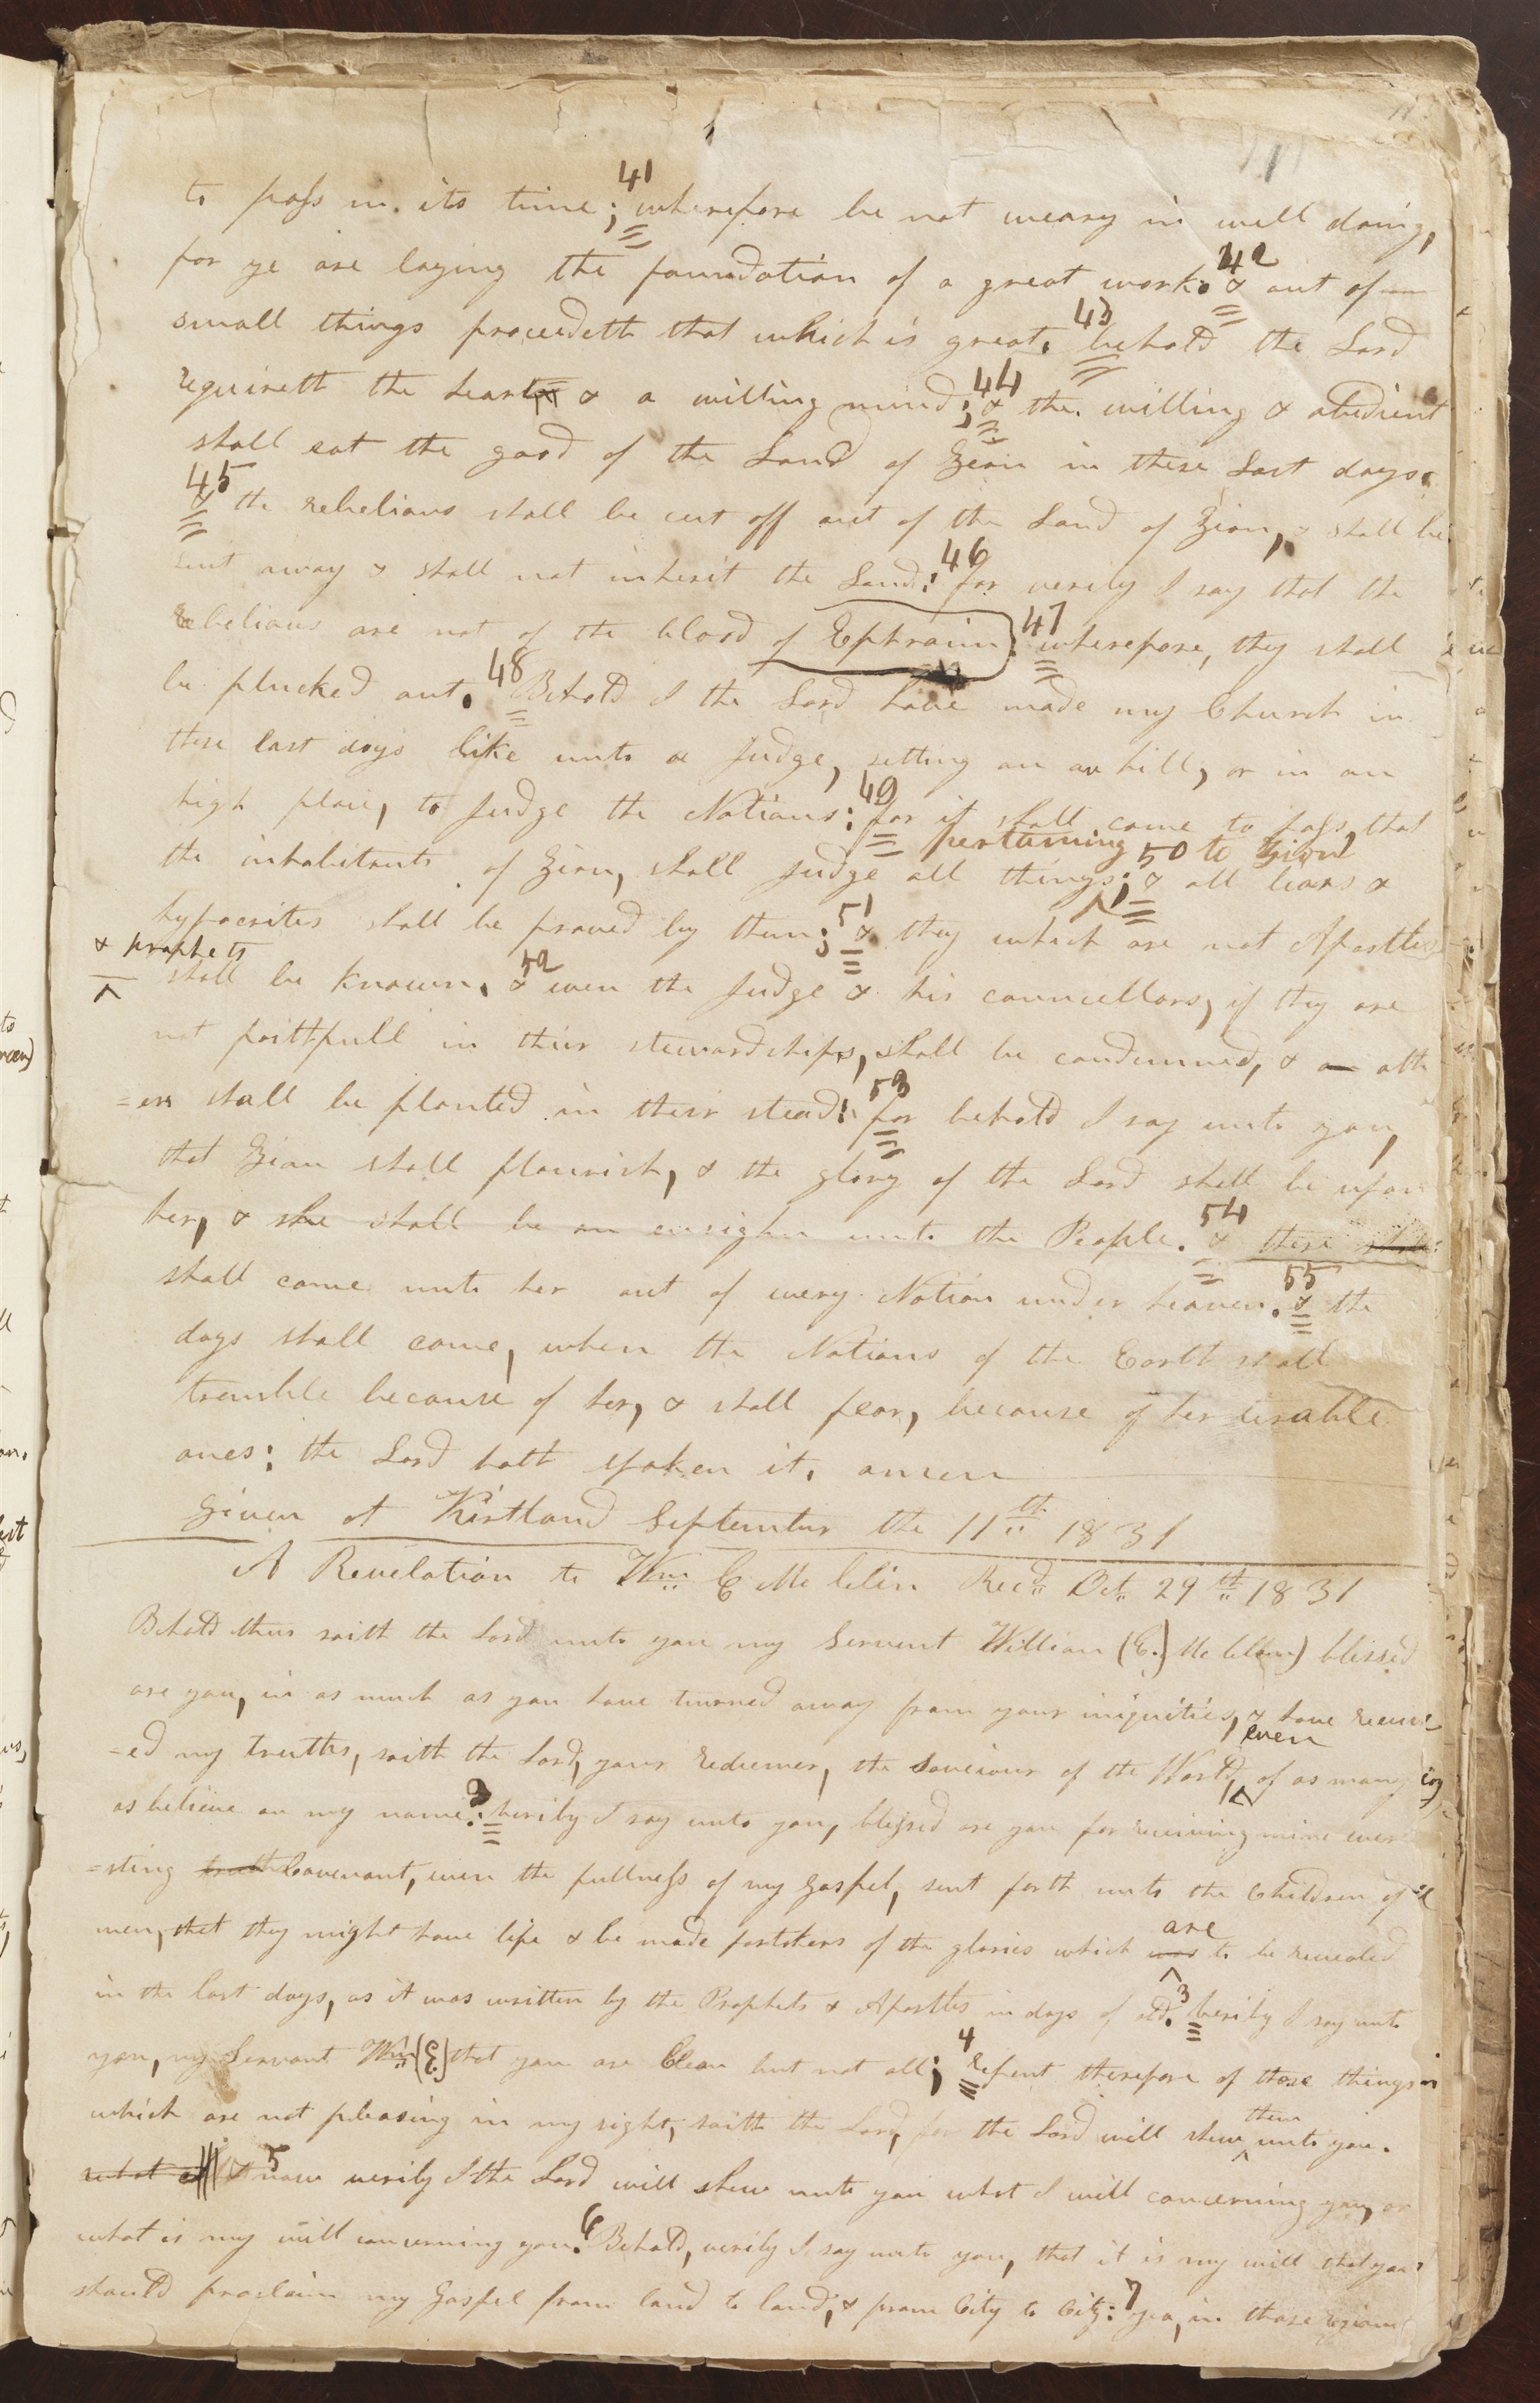 111
to pass in its time; 41 wherefore be not weary in well doing,
for ye are laying the foundation of a great work. 42 & out of
small things proceedeth that which is great. 43 behold the Lord
requireth the heart & a willing mind; 44 & the willing & obedient
shall eat the good of the Land of Zion in these Last days.
45 & the rebelious shall be cut off out of the Land of Zion, & shall be
sent away & shall not inherit the Land: 46 for verily I say that the
Rebelious are not of the blood of Ephraim: 47 wherefore, they shall
be plucked out. 48 Behold I the Lord have made my Church in
these last days like unto a Judge, setting on an hill, or in an
high place, to Judge the Nations: 49 for it shall come to pass, that
pertaining to Zion
the inhabitants of Zion, shall Judge all things; 50 & all liars &
hypocrites shall be proved by them; 51 & they which are not Apostles
& prophets
shall be known. 52 & even the Judge & his councellors, if they are
not faithfull in their stewardships, shall be condemned, & an oth
=ers shall be planted in their stead: 53 for behold I say unto you,
that Zion shall flourish, & the glory of the Lord shall be upon
her, & she shall be an ensighn unto the People. 54 & there shall
shall come unto her out of every Nation under heaven. 55 & the
days shall come, when the Nations of the Earth shall
tremble because of her, & shall fear, because of her terable
ones: the Lord hath spoken it. amen
Given at Kirtland September the 11th 1831
A Revelation to Wm E Mc lelin Recd Oct 29th 1831
Behold thus saith the Lord unto you my Servent William (E.) Mc lelin) blessed
are you, in as much as you have turned away from your iniquities, & have receiv
even
=ed my truths, saith the Lord, your Redeemer, the Saveiour of the World, of as many
as believe on my name: 2 verily I say unto you, blessed are you for receiving mine ever
=sting truth Covenant, even the fullness of my Gospel, sent forth unto the Children of
are
men, that they might have life & be made partakers of the glories which was to be revealed
in the last days, as it was written by the Prophets & Apostles in days of old. 3 verily I say unto
you, my Servent Wm (E.) that you are Clean but not all; 4 Repent therefore of those things
them
which are not pleasing in my sight, saith the Lord, for the Lord will shew unto you.
what I & 5 now verily I the Lord will shew unto you what I will concerning you, or
what is my will concerning you. 6 Behold, verily I say unto you, that it is my will that you
should proclaim my Gospel from land to land, & from City to City: 7 yea, in those regions